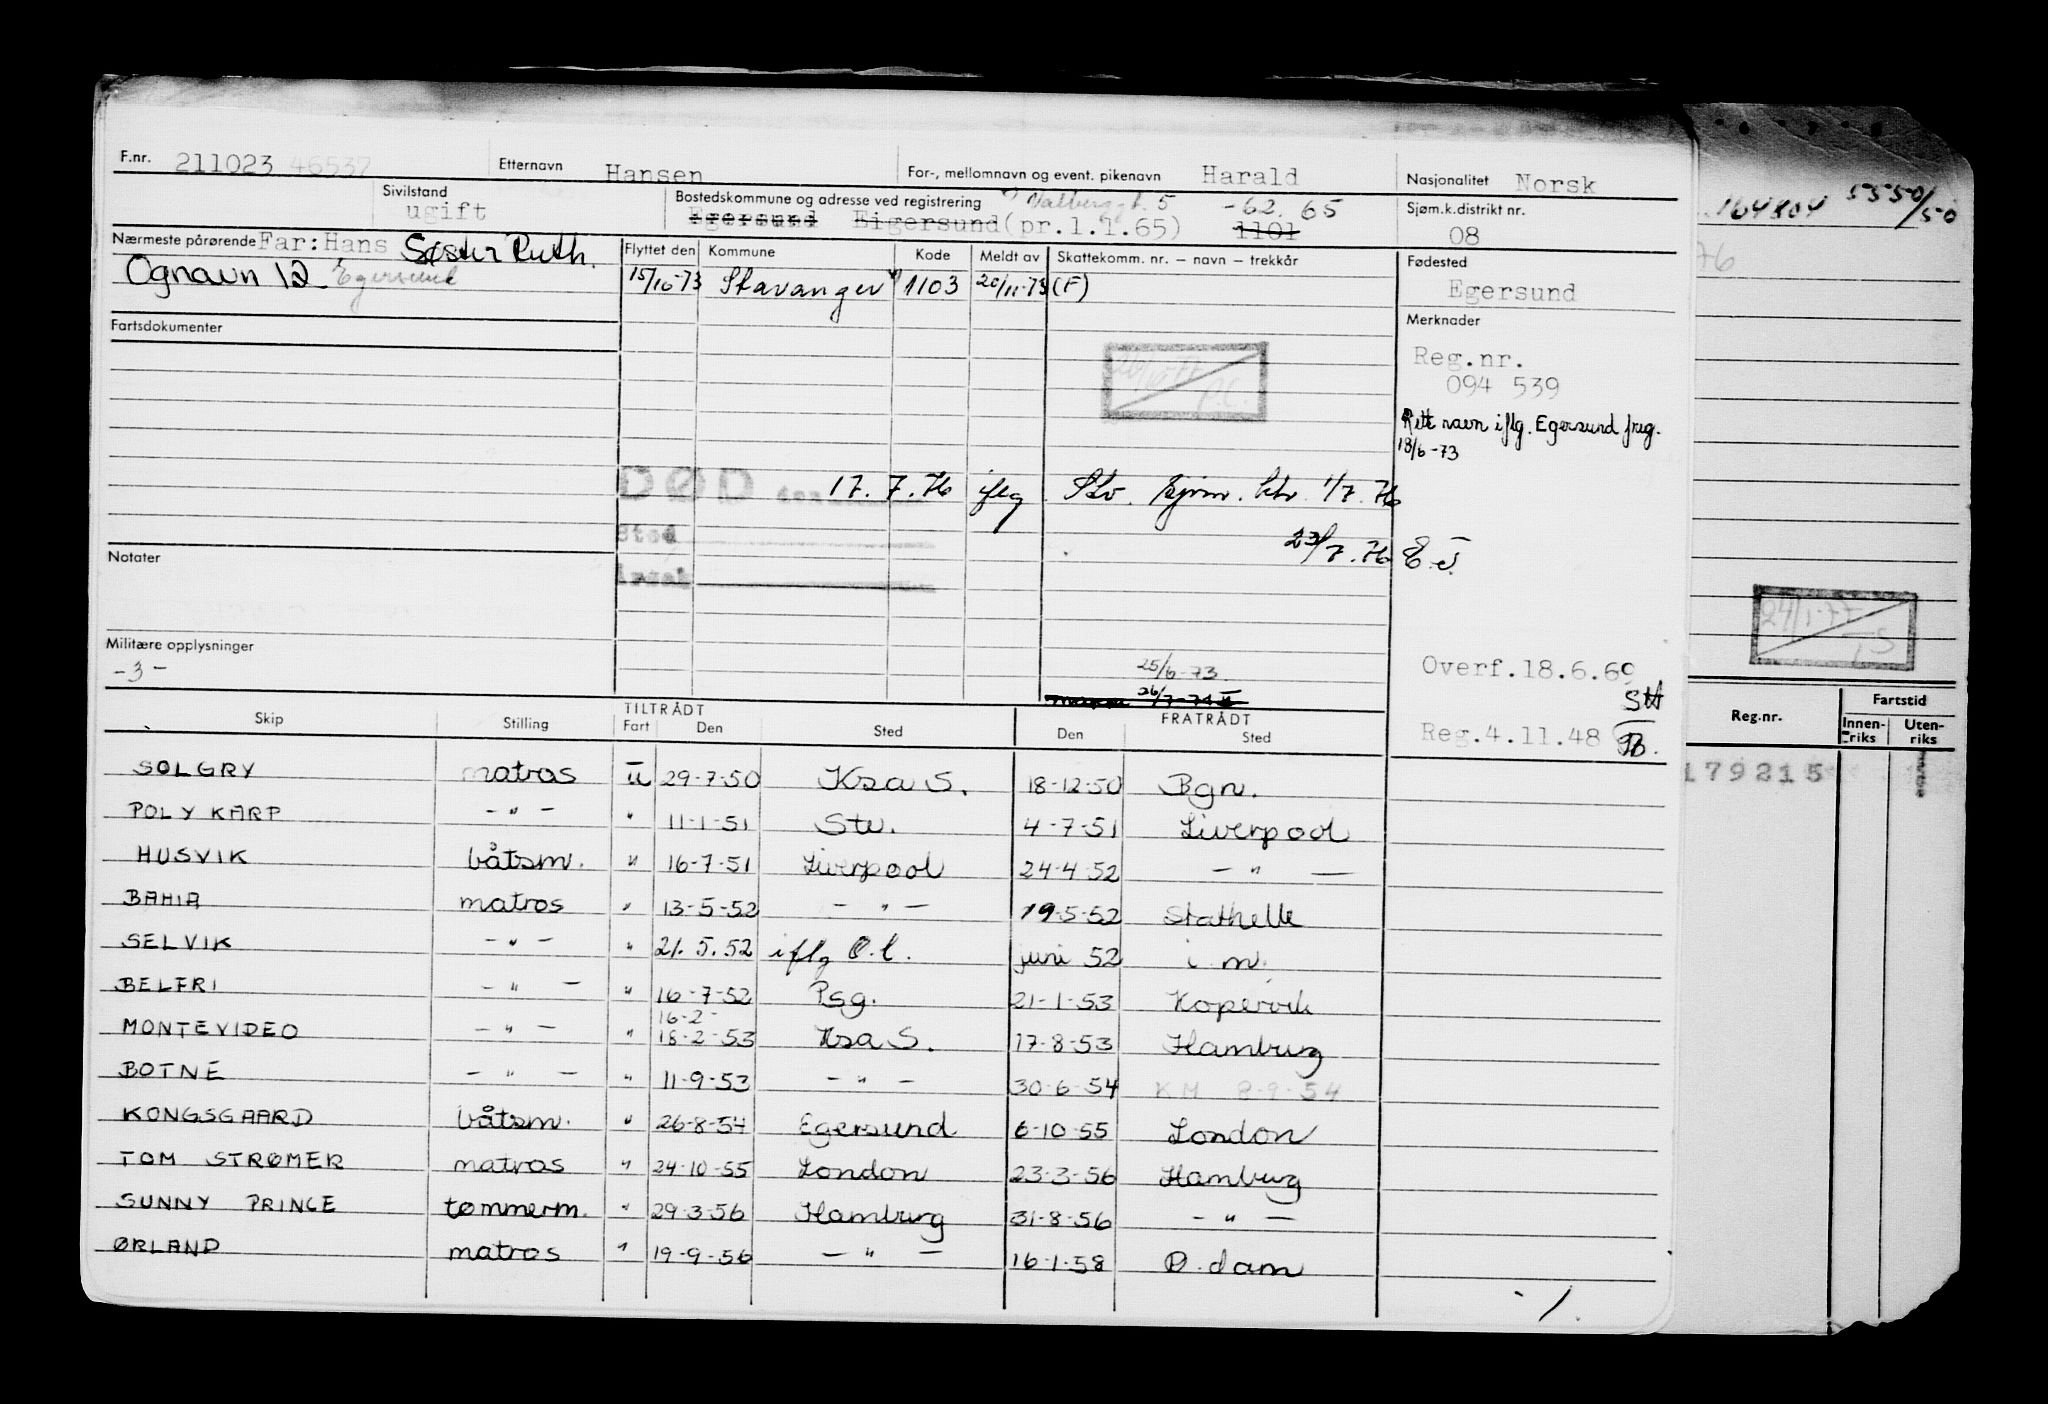 F.nr. 211023 46537 Etternavn Hansen For-, mellomnavn og event. pikenavn Harald Nasjonalitet Norsk
Sivilstand ugift Bostedskommune og adresse ved registrering 5 -62. 65 Sjøm.k.distrikt nr.
Egersund Eigersund (pr.1.1.65) 1101 08
164804 5550/50
Nærmeste pårørende Far: Hans Søster Ruth. Flyttet den Kommune Kode Meldt av Skattekomm. nr. – navn – trekkår Fødested
Ognavn 12 Egersund 15/10-73 Stavanger 1103 20/11-73 (F) Egersund
Fartsdokumenter Merknader
Reg.nr.
094 539
Rett navn iflg. Egersund freg.
18/6-73
DØD 17.7.76 iflg Stv. 1/7.76
Sted 23/7.76
Årsak
Notater
24/1-77
Militære opplysninger
-3-
25/6-73 Overf.18.6.69
26/7-74
Reg.4.11.48
Skip Stilling TILTRÅDT Fart Den Sted FRATRÅDT Den Sted
Reg.nr. Fartstid Innen-riks Uten-riks
SOLGRY matros u 29-7-50 Krsa S. 18-12-50 Bgn. 179215
POLYKARP - " - " 11-1-51 Stv. 4-7-51 Liverpool
HUSVIK båtsm. " 16-7-51 Liverpool 24-4-52 - " -
BAHIA matros " 13-5-52 - " - 19-5-52 Stathelle
SELVIK - " - " 21.5.52 iflg O.l. juni 52 i m.
BELFRI - " - " 16-7-52 Psg. 21-1-53 Kopervik
16-2-
MONTEVIDEO - " - " 18-2-53 Krsa S. 17-8-53 Hamburg
BOTNE - " - " 11-9-53 - " - 30-6-54 KM 8-9-54
KONGSGAARD båtsm. " 26-8-54 Egersund 6-10-55 London
TOM STRØMER matros " 24-10-55 London 23-3-56 Hamburg
SUNNY PRINCE tømmerm. " 29-3-56 Hamburg 31-8-56 - " -
ØRLAND matros " 19-9-56 - " - 16-1-58 R.dam